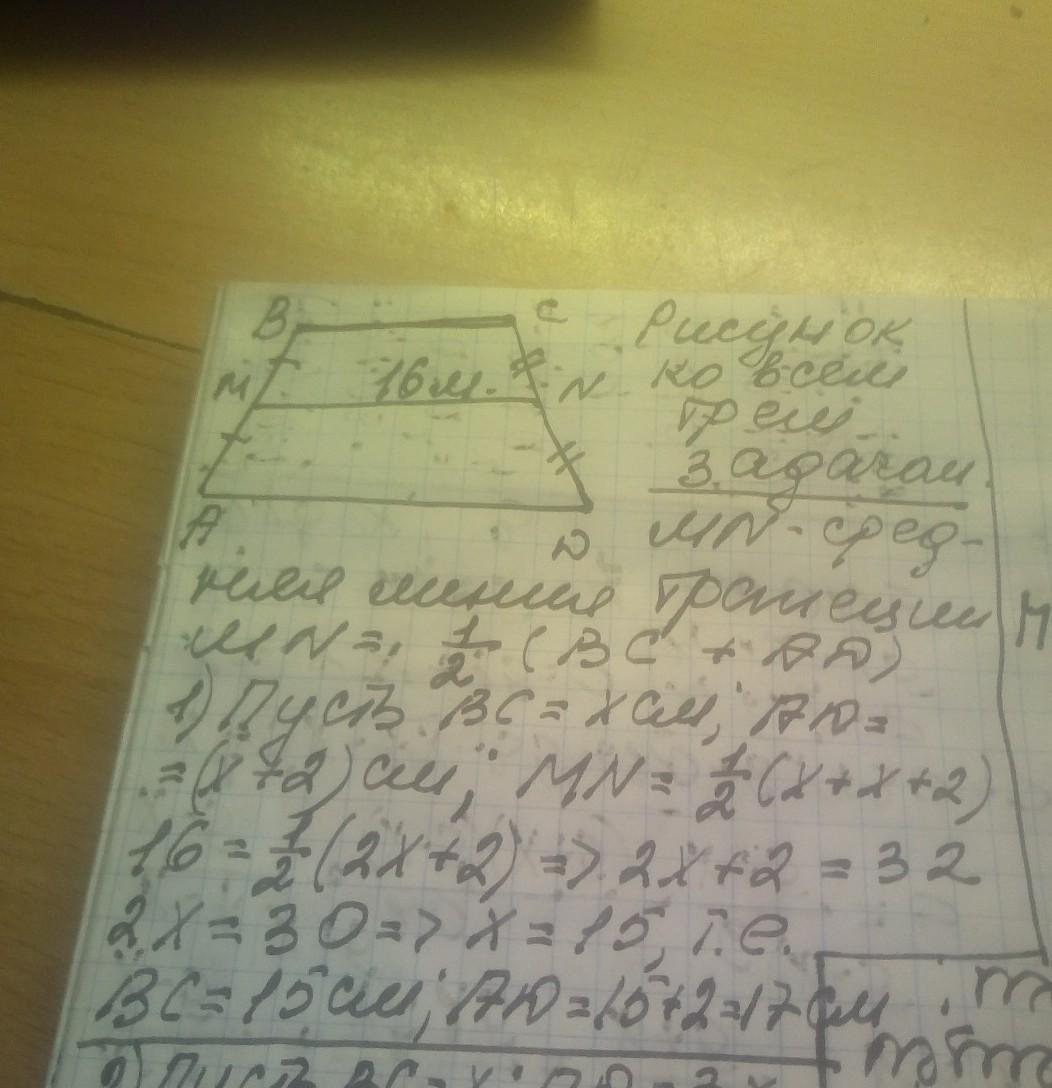 B
C
Рисунок
M
16 м.
N
ко всем
трем
задачам.
A
D
MN - сред-
няя линия трапеции
MN = 1/2 (BC + AD)
1) Пусть BC = x см; AD =
= (x+2) см; MN = 1/2 (x+x+2)
16 = 1/2 (2x+2) => 2x+2 = 32
2x = 30 => x = 15, т.е.
BC = 15 см; AD = 15+2 = 17 см
2) Пусть BC = x; AD =